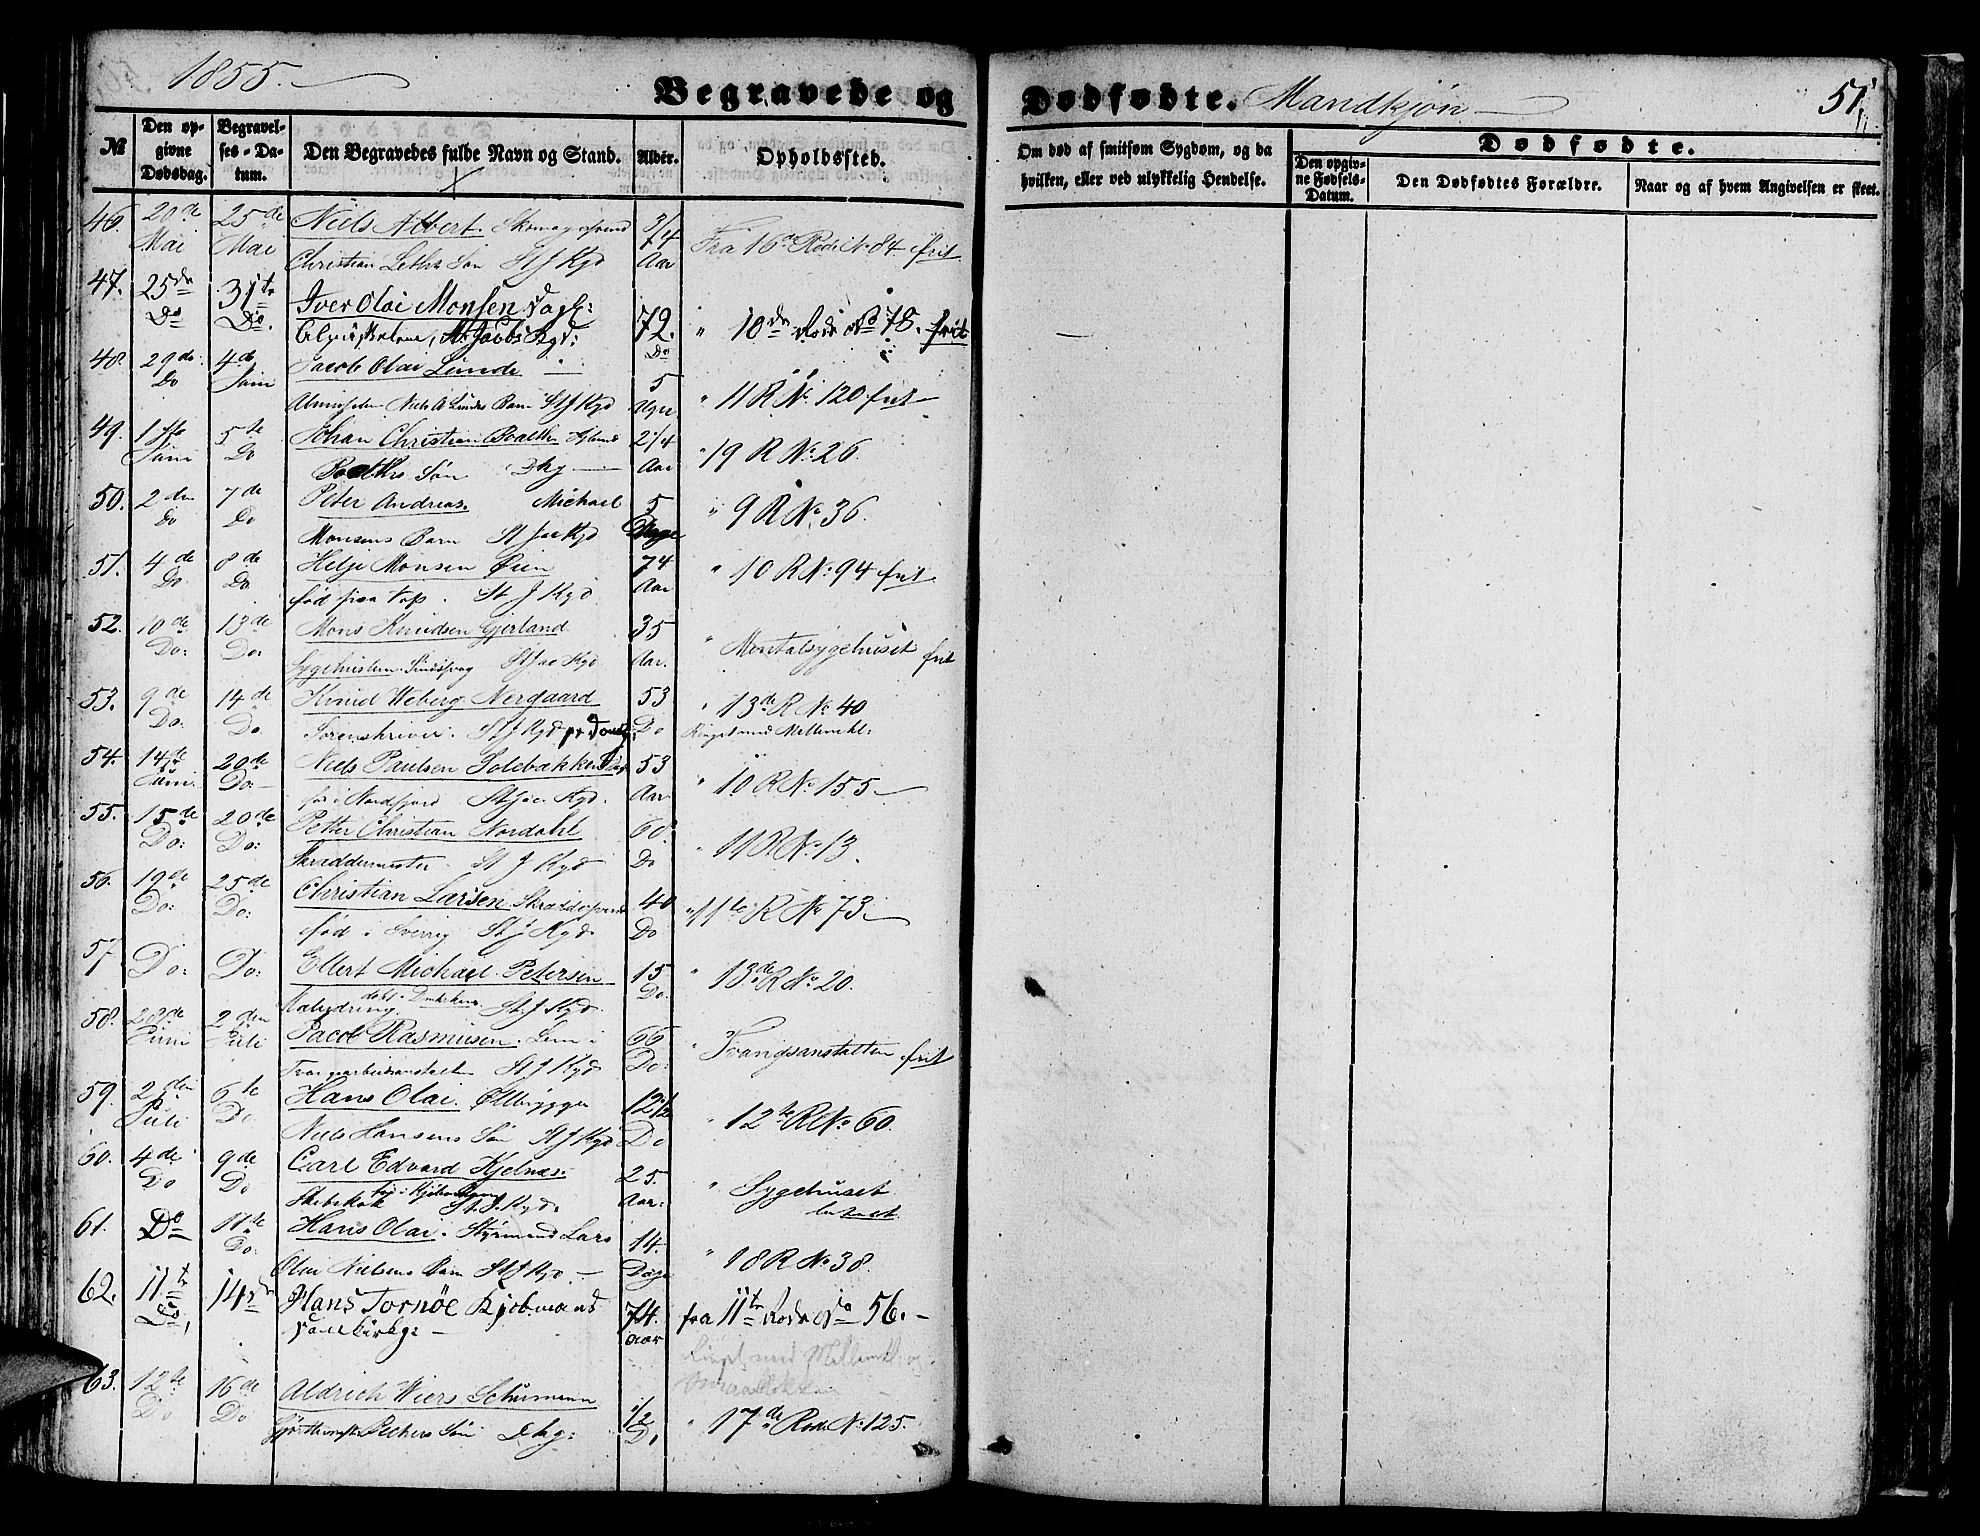 1855.
Begravede og Dødfødte. Mandkjøn
51
№
Den opgivne Dødsdag.
Begravelses-Datum.
Den Begravedes fulde Navn og Stand.
Alder.
Opholdssted.
Om død af smitsom Sygdom, og da hvilken, eller ved ulykkelig Hendelse.
Dødfødte.
Den opgivne Fødsels-Datum.
Den Dødfødtes Forældre.
Naar og af hvem Angivelsen er skeet.
46. 20de Mai 25de Mai Niels Albert. 3/4 Aar Fra 16de Rode No 84 frit
Christian Leths Søn St J Kgd
47. 25de Do 31te Do. Iver Olai Monsen 72. Do " 10de Rode No 78. frit
St Jacobs Kgd:
48. 29de Do 4de Juni Jacob Olai Lunde 5 Uger " 11 R No 120 frit
Niels A Lundes Barn St J Kgd
49. 1ste Juni 5te Do Johan Christian Boalth 2 1/4 Aar " 19 R No 26.
Boalths Søn Dkg
50. 2den Do 7de Do Peter Andreas. Michael 5 Dage " 9 R No 36.
Monsens Barn St Jac Kgd
51. 4de Do 8de Do Helje Monsen Øien 74 Aar " 10 R No 94 frit
fød paa Vos. St J Kgd
52. 10de Do: 13de Do: Mons Knudsen Gjerland 35 Aar. " Mentalsygehuset frit
St Jac Kgd
53. 9de Do: 14de Do. Knud Weberg Nergaard 53 Do " 13de R No 40
Sorenskriver. St J Kgd Ringet med Mellemkl:
54. 14de Juni 20de Do: Niels Paulsen Solebakken 53 Aar " 10 R No 155
fød i Nordfjord St Jac Kgd.
55. 15de Do: 20de Do: Petter Christian Nordahl 60 Do " 11 R No 13.
Skreddermester St J Kgd
56. 19de Do: 25de Do: Christian Larsen 40 Do " 11te R No 73
fød i Sverrig St J Kgd.
57 Do: Do: Ellert Michael Petersen 15 Do. " 13de R No 20.
Malerdreng. St J Kgd.
58. 28de Juni 2den Juli Jacob Rasmusen. Lem i 66 Do: " Tvangsanstalten frit
Tvangsarbeidsanstalten St J Kgd
59. 2den Juli 6te Do Hans Olai. Ølbrygger 12 1/2 Do " 12te R No 60.
Niels Hansens Søn St J Kgd
60. 4de Do 9de Do Carl Edvard Kjelnæs. 25. Aar: " Sygehuset betalt
Skibskok fød i Kjøbenhavn St. J. Kgd.
61. Do 11te Do: Hans Olai. Styrmand Lars 14. Dage " 18 R No 38.
Olai Nielsens Barn St J Kgd.
62. 11te Do, 14de Hans Tornøe Kjøbmand 74. Aar fra 11te Rode No 56.
Domkirkg: Ringet med Mellemkl: og
63. 12te Do 16de Do: Aldrich Wiers Schumann 1/2 D. " 17de Rode No 125.
Søn Dkg: